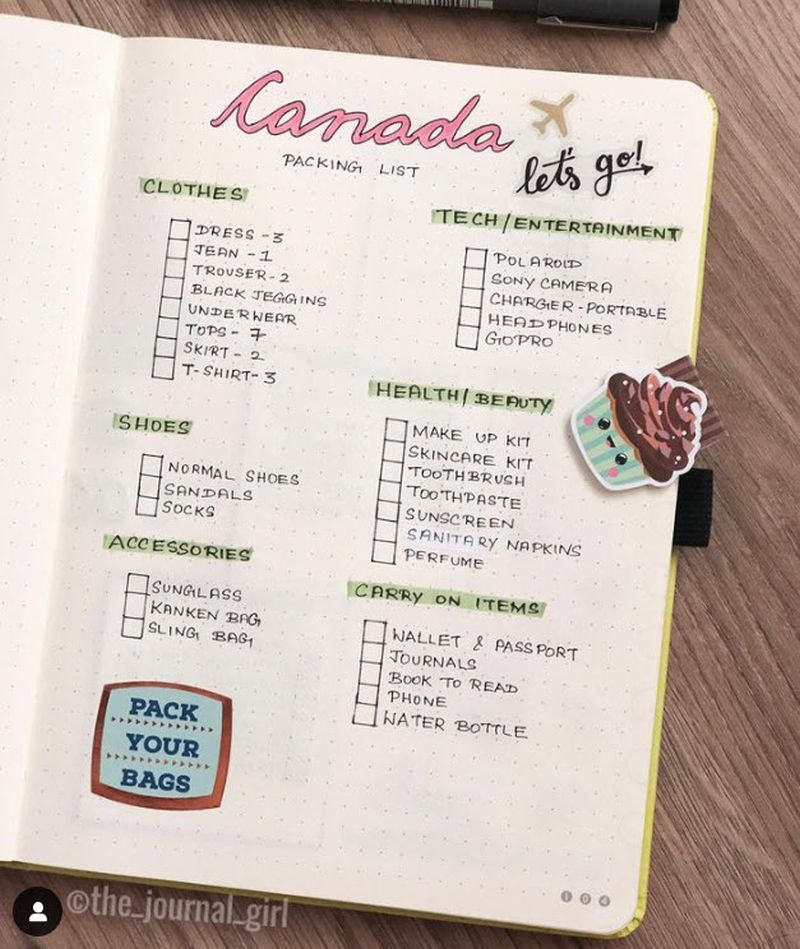 Canada
PACKING LIST
let's go!
CLOTHES
DRESS - 3
JEAN - 1
TROUSER - 2
BLACK JEGGINS
UNDERWEAR
TOPS - 7
SKIRT - 2
T-SHIRT - 3
SHOES
NORMAL SHOES
SANDALS
SOCKS
ACCESSORIES
SUNGLASS
KANKEN BAG
SLING BAG
PACK
YOUR
BAGS
TECH/ENTERTAINMENT
POLAROID
SONY CAMERA
CHARGER - PORTABLE
HEADPHONES
GOPRO
HEALTH/BEAUTY
MAKE UP KIT
SKINCARE KIT
TOOTHBRUSH
TOOTHPASTE
SUNSCREEN
SANITARY NAPKINS
PERFUME
CARRY ON ITEMS
WALLET & PASSPORT
JOURNALS
BOOK TO READ
PHONE
WATER BOTTLE
©the_journal_girl